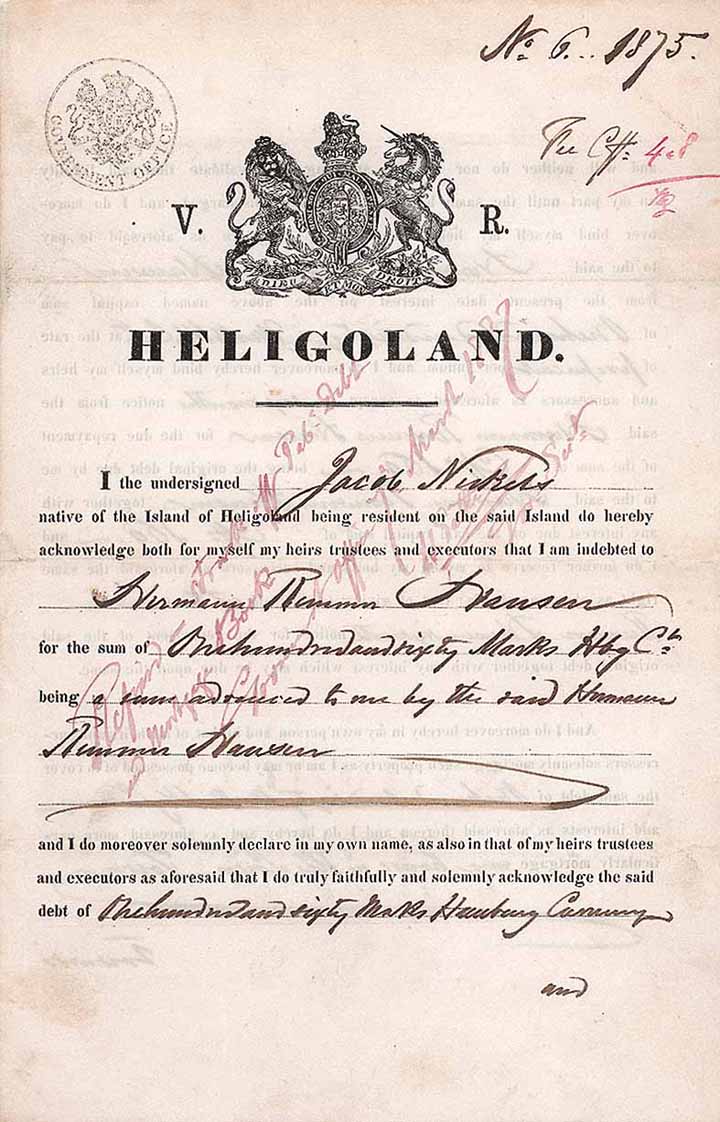 No. 6. 1875.
GOVERNMENT OFFICE
Fee
V. R.
DIEU ET MON DROIT
HELIGOLAND.
I the undersigned Jacob Nickels
native of the Island of Heligoland being resident on the said Island do hereby
acknowledge both for myself my heirs trustees and executors that I am indebted to
Hermann Rimmer Hansen
for the sum of Onehundredandsixty Marks Hbg Ct
being a sum advanced to me by the said Hermann
Rimmer Hansen
and I do moreover solemnly declare in my own name, as also in that of my heirs trustees
and executors as aforesaid that I do truly faithfully and solemnly acknowledge the said
debt of Onehundredandsixty Marks Hamburg Currency
and